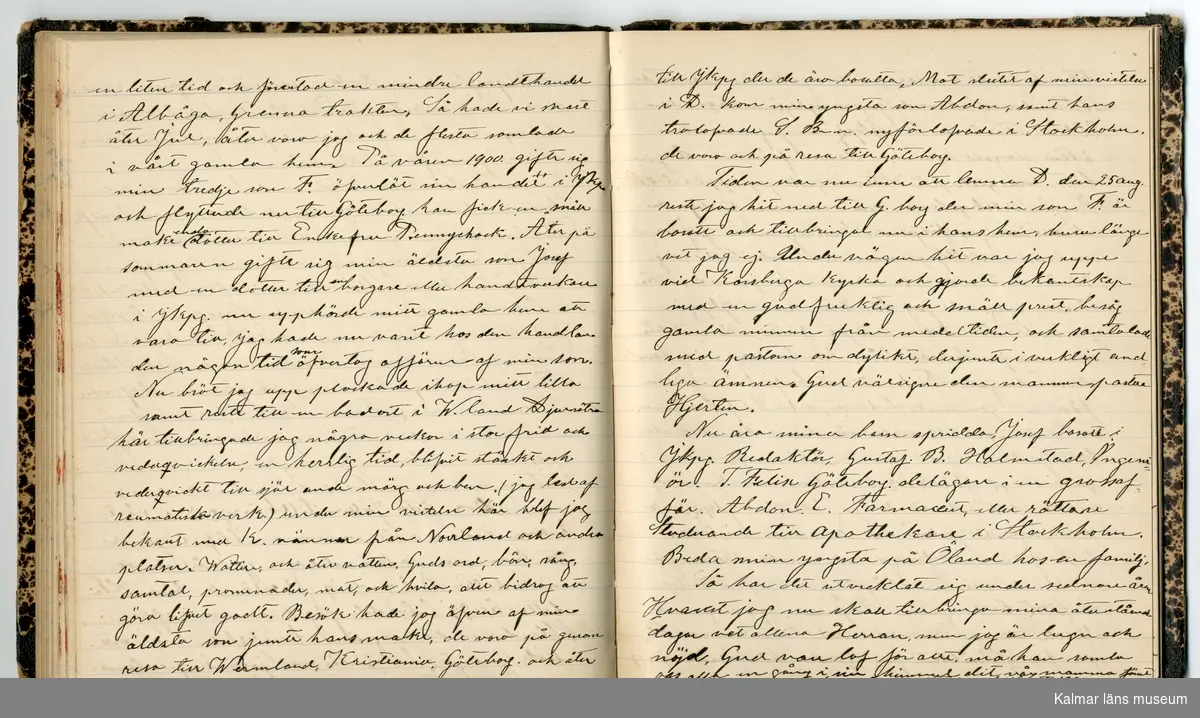 en liten tid och förestod en mindre landthandel
i Ålbåga, Grenna trakten, Så hade vi snart
åter Jul, åter voro jag och de flesta samlade
i vårt gamla hem. På våren 1900. gifte sig
min tredje son F. öfverlät sin handel i Jkpg
och flyttade ner till Göteborg han fick en snäll
maka enda dotter till Enkefru Pennychock. Åter på
sommaren gifte sig min äldsta son Josef
med en dotter till en borgare eller handtverkare
i Jkpg. nu upphörde mitt gamla hem att
vara till, jag hade nu varit hos den handlan
den någon tid som öfvertog affären af min son.
Nu bröt jag upp plockade ihop mitt lilla
samt reste till en badort i W.land Djursätra
här tillbringade jag några veckor i stor frid och
vederqvickelse, en herrlig tid, blifvit stärkt och
vederqvickt till själ ande märg och ben, (jag led af
reumatisk verk.) under min vistelse här blef jag
bekant med K. vänner från Norrland och andra
platser. Watten, och åter vatten, Guds ord, bön, sång,
samtal, promenader, mat, och hvila, allt bidrog att
göra lifvet godt. Besök hade jag äfven af min
äldsta son jemte hans maka, de voro på genom
resa till Wermland, Kristiania, Göteborg. och åter
till Jkpg der de äro bosatta, Mot slutet af min vistelse
i D. kom min yngsta son Abdon, samt hans
trolofvade S. B-n. nyförlofvade i Stockholm.
de voro och på resa till Göteborg.
Tiden var nu inne att lemna D. den 25 aug.
reste jag hit ned till G.borg der min son F. är
bosatt och tillbringar nu i hans hem, huru länge
vet jag ej. Under vägen hit var jag uppe
vid Korsberga kyrka och gjorde bekantskap
med en gudfrucktig och snäll prest, besåg
gamla minnen från medeltiden, och samtalade
med pastorn om dylikt, derjemte i verkligt and
liga ämnen. Gud välsigne den mannens pastor
Hjertén.
Nu äro mina barn spridda, Josef bosatt i
Jkpg. Redaktör, Gustaf. B. Halmstad, Ingeni-
ör. T. Felix Göteborg. delägare i en grossaf-
fär. Abdon. E. Farmaceut, eller rättare
Studerande till Apothekare i Stockholm.
Beda min yngsta på Öland hos en familj,
Så har det utvecklat sig under senare åren
Hvarest jag nu skall tillbringa mina återstående
dagar vet allena Herran, men jag är lugn och
nöjd, Gud vare lof för allt. må han samla
oss alla en gång i sin himmel dit, vår mamma först
Kalmar läns museum